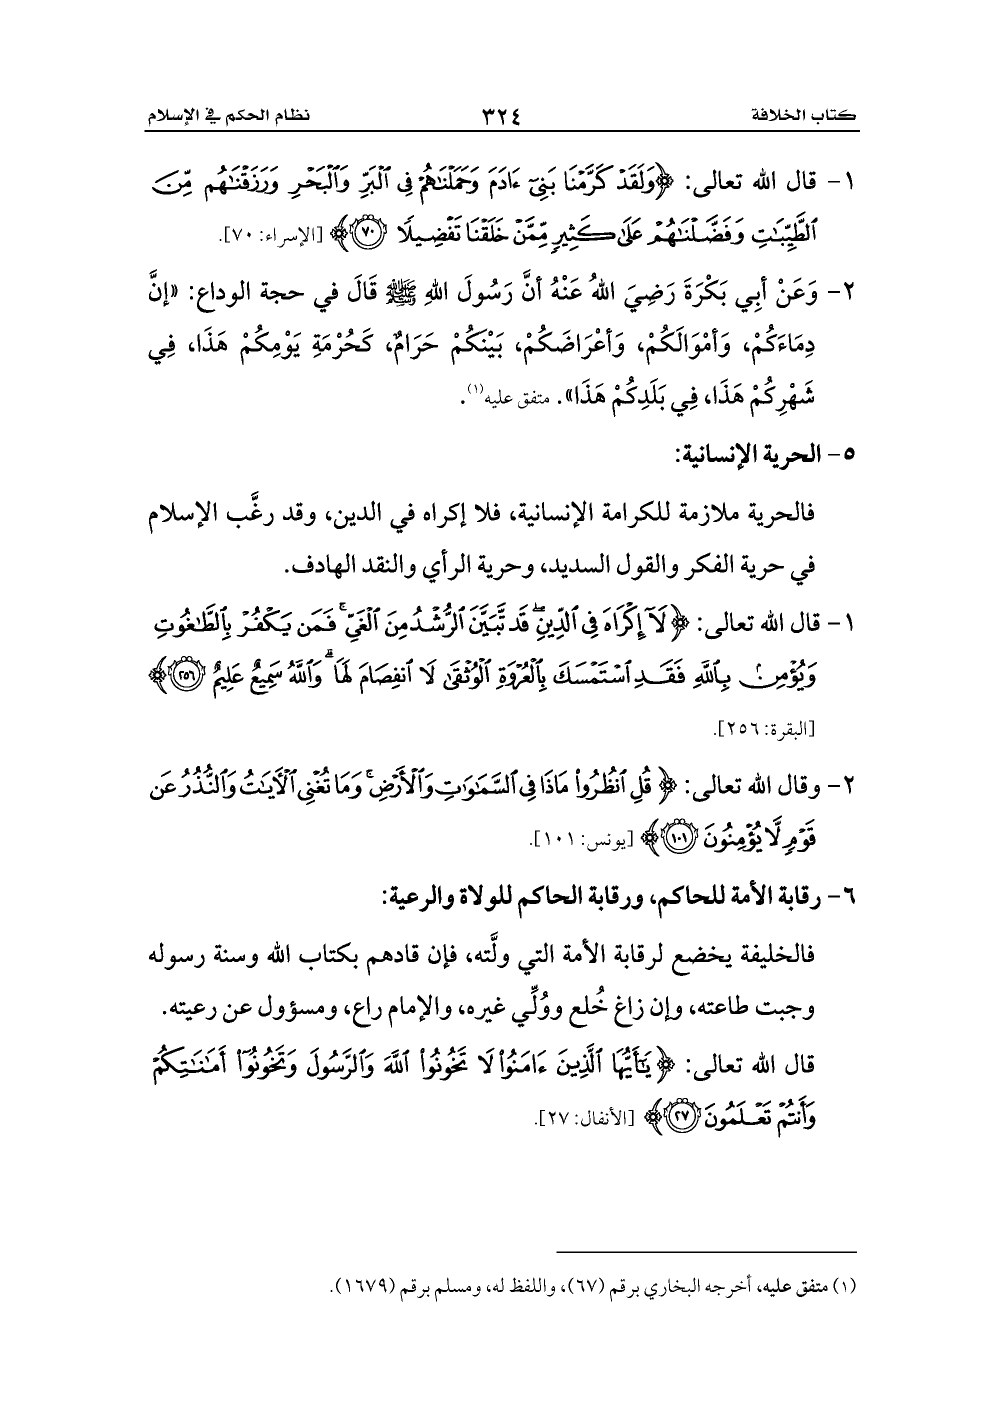 كتاب الخلافة ٣٢٤ نظام الحكم في الإسلام
١- قال الله تعالى: ﴿وَلَقَدْ كَرَّمْنَا بَنِىٓ ءَادَمَ وَحَمَلْنَٰهُمْ فِى ٱلْبَرِّ وَٱلْبَحْرِ وَرَزَقْنَٰهُم مِّنَ
ٱلطَّيِّبَٰتِ وَفَضَّلْنَٰهُمْ عَلَىٰ كَثِيرٍ مِّمَّنْ خَلَقْنَا تَفْضِيلًا ٧٠﴾ [الإسراء: ٧٠].
٢- وَعَنْ أبِي بَكْرَةَ رَضِيَ اللهُ عَنْهُ أنَّ رَسُولَ اللهِ ﷺ قَالَ في حجة الوداع: «إنَّ
دِمَاءَكُمْ، وَأمْوَالَكُمْ، وَأعْرَاضَكُمْ، بَيْنَكُمْ حَرَامٌ، كَحُرْمَةِ يَوْمِكُمْ هَذَا، فِي
شَهْرِكُمْ هَذَا، فِي بَلَدِكُمْ هَذَا». متفق عليه(١).
٥- الحرية الإنسانية:
فالحرية ملازمة للكرامة الإنسانية، فلا إكراه في الدين، وقد رغَّب الإسلام
في حرية الفكر والقول السديد، وحرية الرأي والنقد الهادف.
١- قال الله تعالى: ﴿لَآ إِكْرَاهَ فِى ٱلدِّينِ ۖ قَد تَّبَيَّنَ ٱلرُّشْدُ مِنَ ٱلْغَىِّ ۚ فَمَن يَكْفُرْ بِٱلطَّٰغُوتِ
وَيُؤْمِنۢ بِٱللَّهِ فَقَدِ ٱسْتَمْسَكَ بِٱلْعُرْوَةِ ٱلْوُثْقَىٰ لَا ٱنفِصَامَ لَهَا ۗ وَٱللَّهُ سَمِيعٌ عَلِيمٌ ٢٥٦﴾
[البقرة: ٢٥٦].
٢- وقال الله تعالى: ﴿قُلِ ٱنظُرُوا۟ مَاذَا فِى ٱلسَّمَٰوَٰتِ وَٱلْأَرْضِ ۚ وَمَا تُغْنِى ٱلْءَايَٰتُ وَٱلنُّذُرُ عَن
قَوْمٍ لَّا يُؤْمِنُونَ ١٠١﴾ [يونس: ١٠١].
٦- رقابة الأمة للحاكم، ورقابة الحاكم للولاة والرعية:
فالخليفة يخضع لرقابة الأمة التي ولَّته، فإن قادهم بكتاب الله وسنة رسوله
وجبت طاعته، وإن زاغ خُلع ووُلِّي غيره، والإمام راع، ومسؤول عن رعيته.
قال الله تعالى: ﴿يَٰٓأَيُّهَا ٱلَّذِينَ ءَامَنُوا۟ لَا تَخُونُوا۟ ٱللَّهَ وَٱلرَّسُولَ وَتَخُونُوٓا۟ أَمَٰنَٰتِكُمْ
وَأَنتُمْ تَعْلَمُونَ ٢٧﴾ [الأنفال: ٢٧].
(١) متفق عليه، أخرجه البخاري برقم (٦٧)، واللفظ له، ومسلم برقم (١٦٧٩).